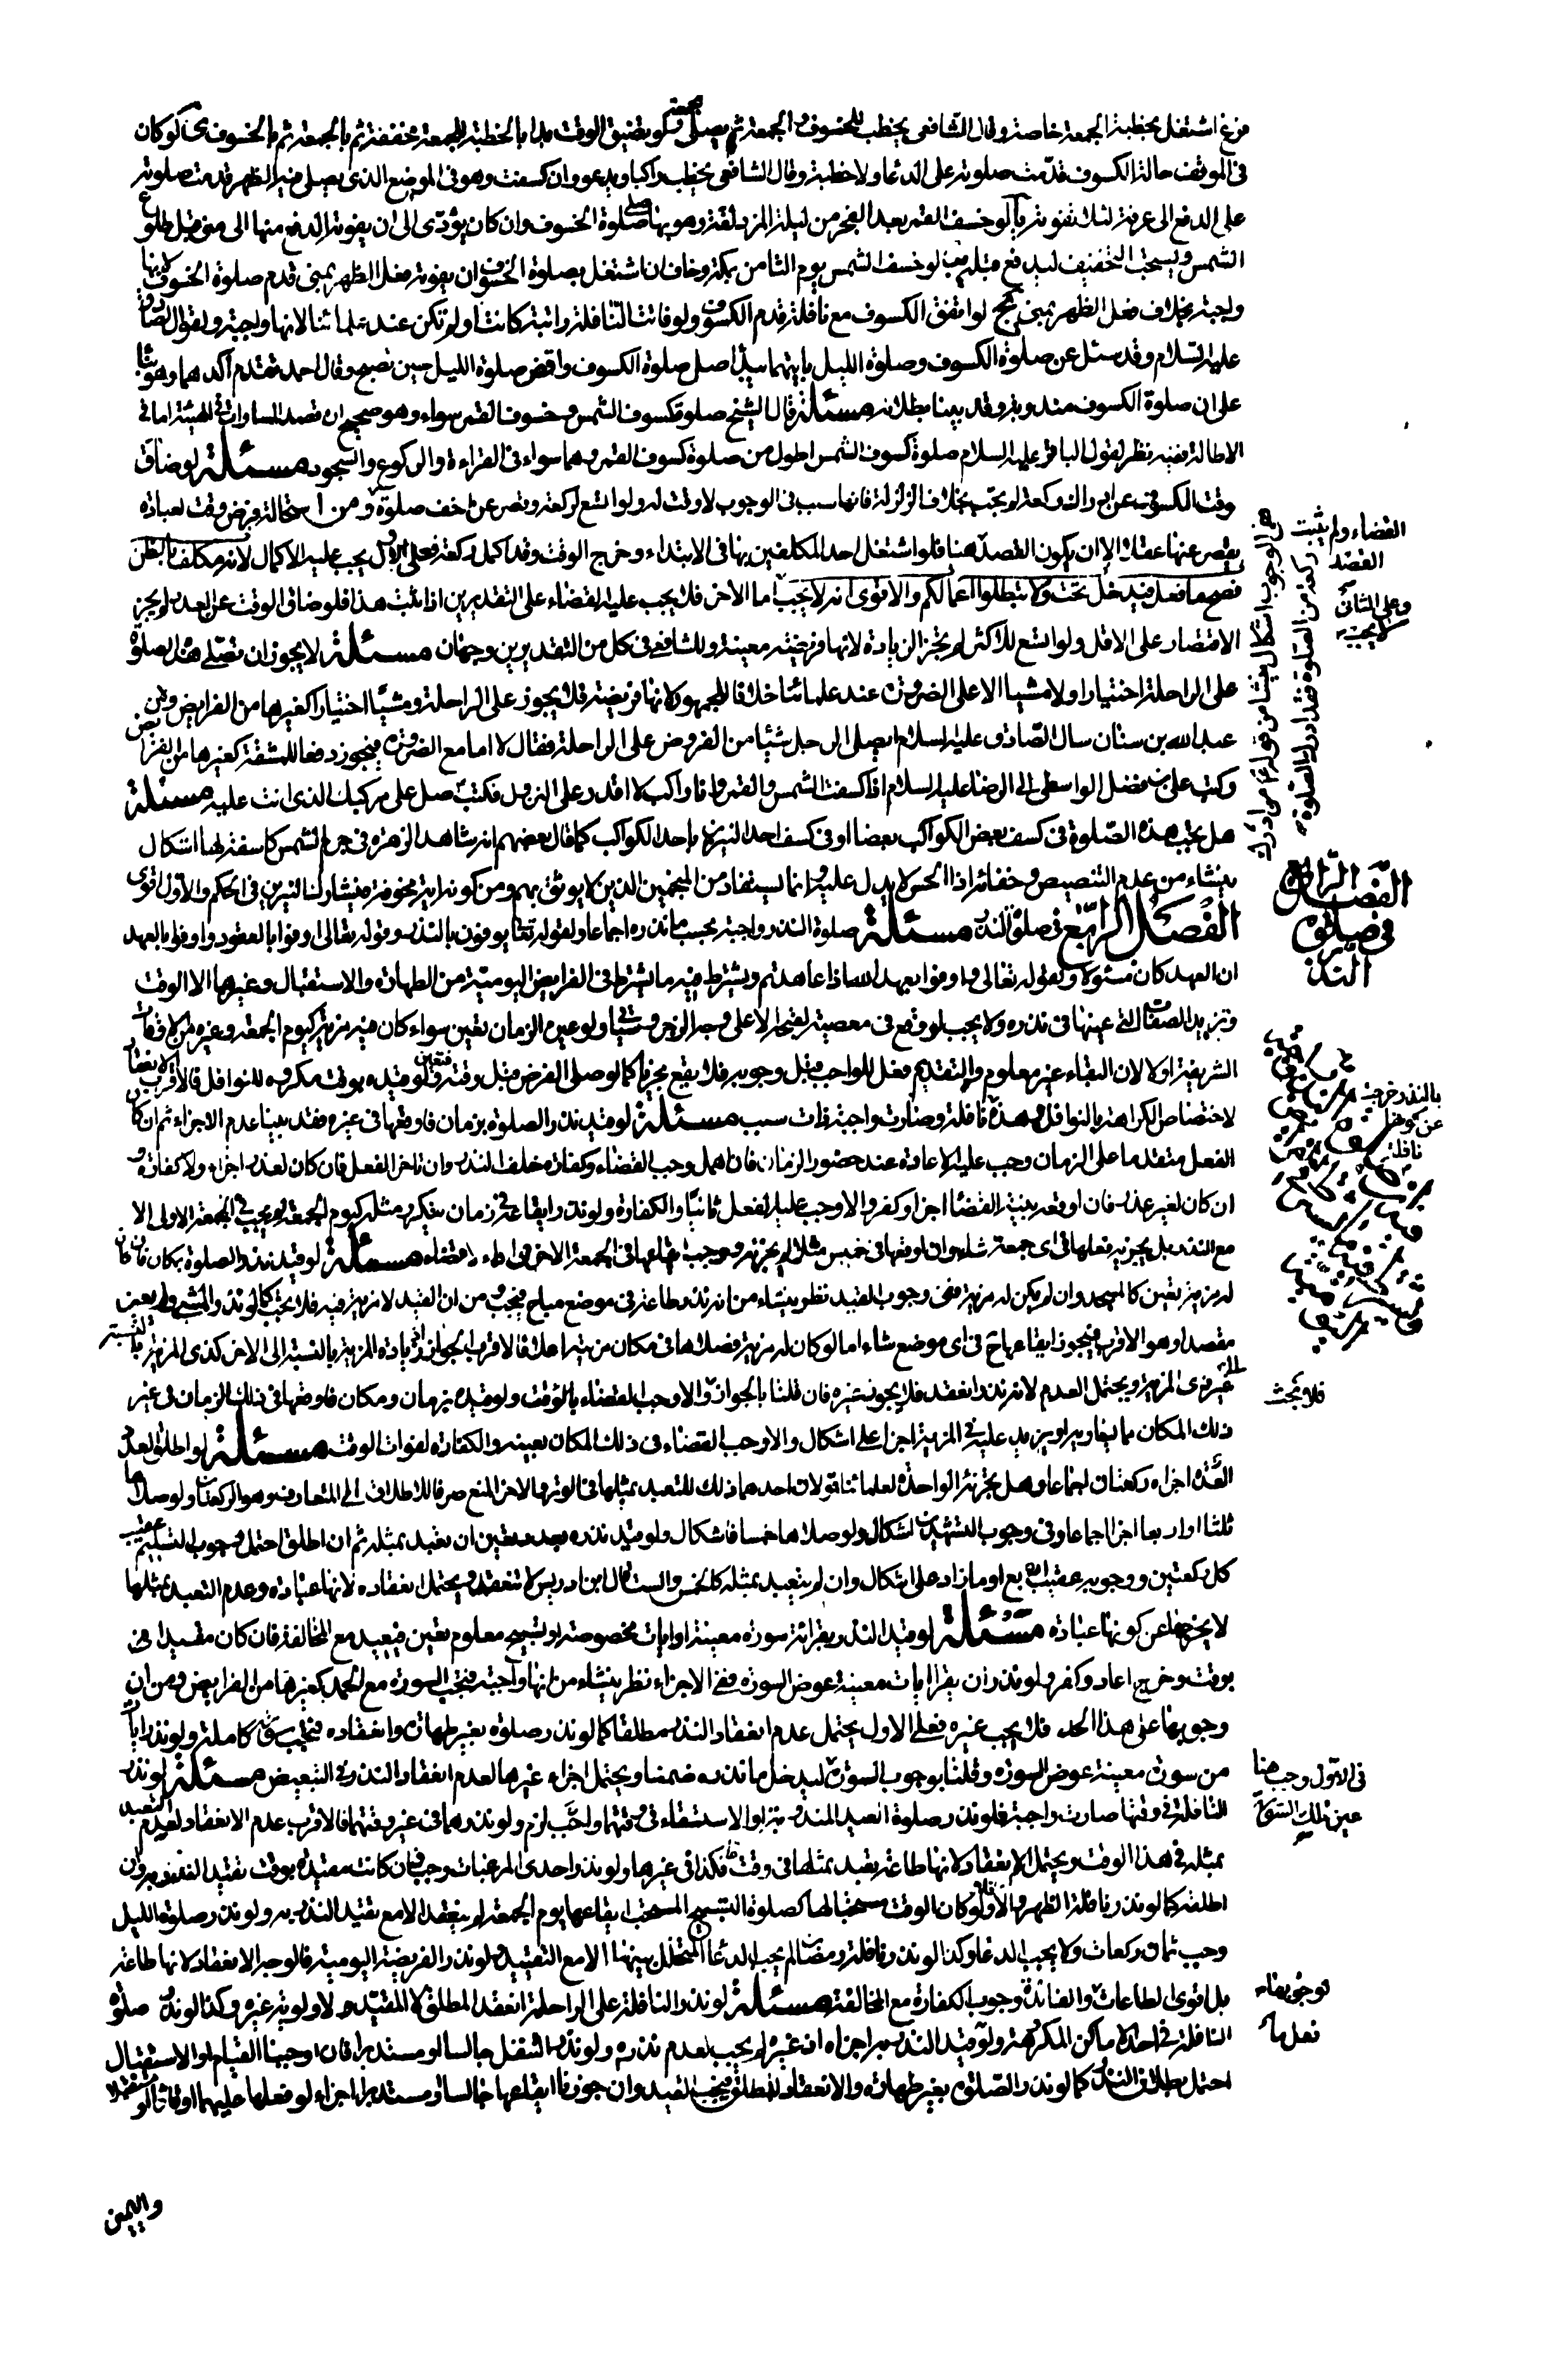 فرغ اشتغل بخطبة الجمعة خاصة وقال الشافعي يخطب للخسوف والجمعة ثم يصلى الجمعة ولو تضيق الوقت بدا بالخطبة للجمعة مخففة ثم بالجمعة ثم بالخسوف لو كان
فى الموقف حالة الكسوف قدمت صلوته على الدعاء ولا خطبة وقال الشافعى يخطب راكبا ويدعو وان كسفت وهو فى الموضع الذى يصلى فيه الظهر قدمت صلوته
على الدفع الى عرفة لئلا تفوته لو خسف القمر بعد الفجر من ليلة المزدلفة وهو بها صلى صلوة الخسوف وان كان يؤدى الى ان يفوته الدفع منها الى منى قبل طلوع
الشمس ويستحب التخفيف ليدفع قبله لو خسف الشمس يوم الثامن بمكة وخاف ان اشتغل بصلوة الخسوف ان يفوته فعل الظهر بمنى قدم صلوة الخسوف لانها
واجبة بخلاف فعل الظهر بمنى لو اتفق الكسوف مع نافلة قدم الكسوف ولو فاتت النافلة راتبة كانت او لم تكن عند علمائنا لانها واجبة ولقول الصادق
عليه السلام وقد سئل عن صلوة الكسوف وصلوة الليل بايتهما نبدا صل صلوة الكسوف واقض صلوة الليل حين تصبح وقال احمد تقدم آكدهما وهو بناء
على ان صلوة الكسوف مندوبة وقد بينا بطلانه مسئلة قال الشيخ صلوة كسوف الشمس وخسوف القمر سواء وهو صحيح ان قصد المساواة فى الهيئة اما فى
الاطالة ففيه نظر لقول الباقر عليه السلام صلوة كسوف الشمس اطول من صلوة كسوف القمر وهما سواء فى القراءة والركوع والسجود مسئلة لو ضاق
وقت الكسوف عن ادراك ركعة لم يجب بخلاف الزلزلة فانها سبب فى الوجوب لا وقت له ولو اتسع لركعة وقصر عن اخف صلوة ومن استحالة فرض وقت لعبادة
يقصر عنها عقلا الا ان يكون القصد هنا فلو اشتغل احد المكلفين بها فى الابتداء وخرج الوقت وقد اكمل ركعة فعلى الاول يجب عليه الاكمال لانه مكلف بالظن
فصح ما فعل فيدخل تحت ولا تبطلوا اعمالكم والاقوى انه لا يجب اما الاخر فلا يجب عليه القضاء على التقديرين اذا ثبت هذا فلو ضاق الوقت عن العدد لم يجز
الاقتصار على الاقل ولو اتسع للاكثر لم تجز الزيادة لانها فريضة معينة وللشافعى فى كل من التقديرين وجهان مسئلة لا يجوز ان تصلى هذه الصلوة
على الراحلة اختيارا ولا مشيا الا على الضرورة عند علمائنا خلافا للجمهور لانها فريضة فلا يجوز على الراحلة ومشيا اختيارا كغيرها من الفرايض ولان
عبد الله بن سنان سال الصادق عليه السلام ايصلى الرجل شيئا من الفروض على الراحلة فقال لا اما مع الضرورة فيجوز دفعا للمشقة كغيرها من الفرائض
وكتب على بن فضل الواسطى الى الرضا عليه السلام اذا كسفت الشمس والقمر وانا راكب لا اقدر على النزول فكتب صل على مركبك الذى انت عليه مسئلة
هل يجب هذه الصلوة فى كسف بعض الكواكب بعضا او فى كسف احد النيرين باحد الكواكب كما قال بعضهم انه شاهد الزهرة فى جرم الشمس كاسفة لها اشكال
ينشاء من عدم التنصيص وخفائه اذا الحس لا يدل عليه وانما يستفاد من المنجمين الذين لا يوثق بهم ومن كونه اية مخوفة فيشارك النيرين فى الحكم والاول اقوى
الفصل الرابع فى صلوة النذر مسئلة صلوة النذر واجبة بحسب ما نذره اجماعا ولقوله تعالى يوفون بالنذر وقوله تعالى اوفوا بالعقود واوفوا بالعهد
ان العهد كان مسئولا ولقوله تعالى واوفوا بعهد الله اذا عاهدتم ويشترط فيه ما يشترط فى الفرايض اليومية من الطهارة والاستقبال وغيرها الا الوقت
وتزيد الصفات التى عينها فى نذره ولا يجب لو وقع فى معصية ولو عين الزمان تعين سواء كان فيه مزية كيوم الجمعة وغيره من الاوقات
الشريفة او لا لان البقاء غير معلوم والتقديم فعل للواجب قبل وجوبه فلا يقع مجزيا كما لو صلى الفرض قبل وقته ولو قيده بوقت مكروه للنوافل فالاقرب الانعقاد
لاختصاص الكراهة بالنوافل وهذه نافلة وصارت واجبة ذات سبب مسئلة لو قيد نذر الصلوة بزمان فاوقعها فى غيره فقد بينا عدم الاجزاء ثم ان كان
الفعل متقدما على الزمان وجب عليه الاعادة عند حضور الزمان فان اهمل وجب القضاء وكفارة خلف النذر وان تاخر الفعل فان كان لعذر اجزاء ولا كفارة و
ان كان لغير عذر فان اوقعه بنية القضاء اجزا وكفر والا وجب عليه الفعل ثانيا والكفارة ولو نذر ايقاعه فى زمان يتكرر مثله كيوم الجمعة لم يجب فى الجمعة الاولى الا
مع النذر بل يجزيه فعلها فى اى جمعة شاء ولو اوقعها فى خميس مثلا لم يجزه ووجب فعلها فى الجمعة الاخرى اداء لا قضاء مسئلة لو قيد نذر الصلوة بمكان فان كان
له مزية تعين كالمسجد وان لم يكن له مزية ففى وجوب القيد نظر ينشاء من انه نذر طاعة فى موضع مباح فيجب ومن ان القيد لا مزية فيه فلا يجب
مقصدا وهو الاقرب فيجوز ايقاعها فى اى موضع شاء اما لو كان له مزية فصلاها فى مكان مزيته اعلى فالاقرب الجواز لان زيادة المزية بالنسبة الى الاخر كذى المزية بالنسبة
الى غير ذى المزية ويحتمل العدم لانه نذر انعقد فلا يجوز غيره فان قلنا بالجواز والا وجب القضاء بالوقت ولو قيده بزمان ومكان فاوقعها فى ذلك الزمان فى غير
ذلك المكان مما يساويه او يزيد عليه فى المزية اجزا على اشكال والا وجب القضاء فى ذلك المكان بعينه والكفارة لفوات الوقت مسئلة لو اطلق العدد
اجزاه ركعتان اجماعا وهل يجزئه الواحدة لعلمائنا قولان احدهما ذلك للتعبد بمثلها فى الوتر والاخر المنع صرفا للاطلاق الى المتعارف وهو الركعتان ولو صلاها
ثلثا او اربعا اجزا اجماعا وفى وجوب التشهدين اشكال ولو صلاها خمسا فاشكال ولو قيد نذره بعدد معين ان تعبد بمثله ثم ان اطلق احتمل وجوب التسليم عقيب
كل ركعتين ووجوبه عقيب اربع او ما زاد على اشكال وان لم يتعبد بمثله كالخمس والست قال ابن ادريس لا تنعقد ويحتمل انعقاده لانها عبادة وعدم التعبد بمثلها
لا يخرجها عن كونها عبادة مسئلة لو قيد النذر بقراءة سورة معينة او ايات مخصوصة او تسبيح معلوم تعين فيعيد مع المخالفة فان كان مقيدا
بوقت وخرج اعاد وكفر ولو نذر ان يقرا ايات معينة عوض السورة ففى الاجزاء نظر ينشاء من انها واجبة فتجب السورة مع الحمد كغيرها من الفرايض ومن ان
وجوبها على هذا الحد فلا يجب غيره فعلى الاول يحتمل عدم انعقاد النذر مطلقا كما لو نذر صلوة بغير طهارة وانعقاده فيجب سورة كاملة ولو نذر ايات
من سورة معينة عوض السورة وقلنا بوجوب السورة ليدخل ما نذره ضمنا ويحتمل اجزاء غيرها لعدم انعقاد النذر فى التبعيض مسئلة لو نذر
النافلة فى وقتها صارت واجبة فلو نذر صلوة العيد المندوبة او الاستسقاء فى وقتهما وجب ولزم ولو نذرهما فى غير وقتهما فالاقرب عدم الانعقاد لعدم التعبد
بمثله فى هذا الوقت ويحتمل الانعقاد لانها طاعة تعبد بمثلها فى وقت فكذا فى غيرها ولو نذر احدى المرغبات وجب فان كانت مقيدة بوقت تقيد النذر به وان
اطلقه كما لو نذر نافلة الظهر والا ولو كان الوقت مستحبا لها كصلوة التسبيح المستحب ايقاعها يوم الجمعة لم ينعقد الا مع تقييد النذر به ولو نذر صلوة الليل
وجب ثمان ركعات ولا يجب الدعاء وكذا لو نذر نافلة رمضان لم يجب الدعاء المتخلل بينها الا مع التقييد ولو نذر الفريضة اليومية فالوجه الانعقاد لانها طاعة
بل اقوى الطاعات والفائدة وجوب الكفارة مع المخالفة مسئلة لو نذر النافلة على الراحلة انعقد المطلق لا المقيد لاولوية غيره وكذا لو نذر صلوة
النافلة فى احد الاماكن المكروهة ولو قيد النذر اجزاه او غيره لم يجب لعدم نذره ولو نذر التنفل جالسا او مستدبرا فان اوجبنا القيام او الاستقبال
احتمل بطلان النذر كما لو نذر الصلوة بغير طهارة والانعقاد للمطلق فيجب القيد وان جوزنا ايقاعها جالسا او مستدبرا اجزاء لو فعلها عليهما او قائما او مستقبلا
القضاء ولم يثبت
القصد
وعلى الثانى
لا يجب
الفصل الرابع
فى صلوة
النذر
بالنذر خرجت
عن كونها
نافلة
فلا يجب
فى الاول وجب هنا
عين تلك السورة
لو جوزناه
نعل
واليمين